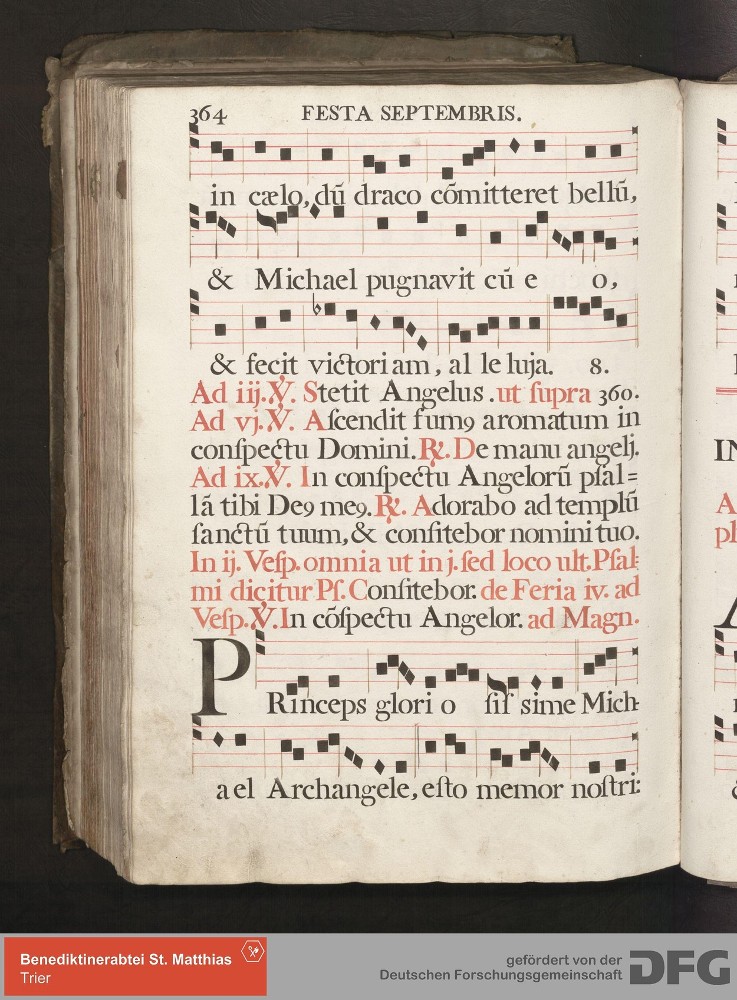 364 FESTA SEPTEMBRIS.
in cælo, dū draco cōmitteret bellū,
& Michael pugnavit cū e o,
& fecit victoriam, al le luja. 8.
Ad iij. ℣. Stetit Angelus. ut ſupra 360.
Ad vj. ℣. Aſcendit fumꝯ aromatum in
conſpectu Domini. ℟. De manu angelj.
Ad ix. ℣. In conſpectu Angelorū pſal=
lā tibi Deꝯ meꝯ. ℟. Adorabo ad templū
ſanctū tuum, & confitebor nomini tuo.
In ij. Veſp. omnia ut in j. ſed loco ult. Pſal=
mi dicitur Pſ. Confitebor. de Feria iv. ad
Veſp. ℣. In cōſpectu Angelor. ad Magn.
PRinceps glori o ſiſ sime Mich-
ael Archangele, eſto memor noſtri:
Benediktinerabtei St. Matthias
Trier
gefördert von der
Deutschen Forschungsgemeinschaft
DFG